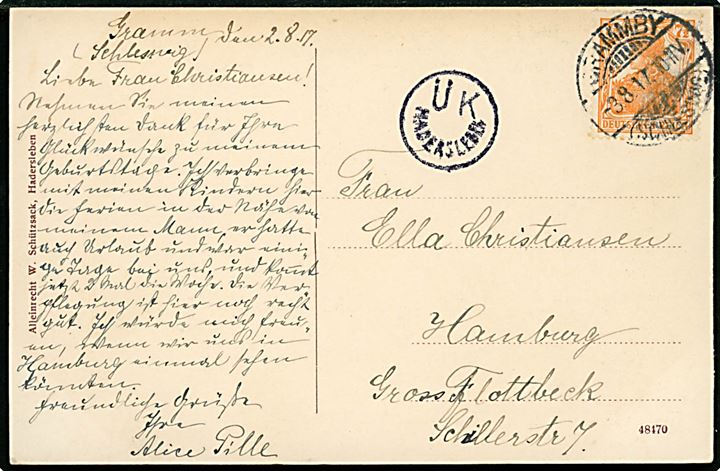 Gramm
(Schleswig) den 2.8.17.
Liebe Frau Christiansen!
Nehmen Sie meinen
herzlichsten Dank für Ihre
Glückwünsche zu meinem
Geburtstage. Ich verbringe
mit meinen Kindern hier
die Ferien in der Nähe von
meinem Mann, er hatte
auch Urlaub und war eini-
ge Tage bei uns, und kommt
jetzt 2 Mal die Woche. Die Ver-
pflegung ist hier noch recht
gut. Ich würde mich freu-
en, wenn wir uns in
Hamburg einmal sehen
könnten.
Freundliche Grüße
Ihre
Alice Pille
Alleinrecht W. Schützsack, Hadersleben
UK
HADERSLEBEN
GRAMMBY
-3.8.17.
(SCHLESWIG)
DEUTSCHES REICH
Frau
Ella Christiansen
Hamburg
Gross Flottbeck
Schillerstr 7.
48470